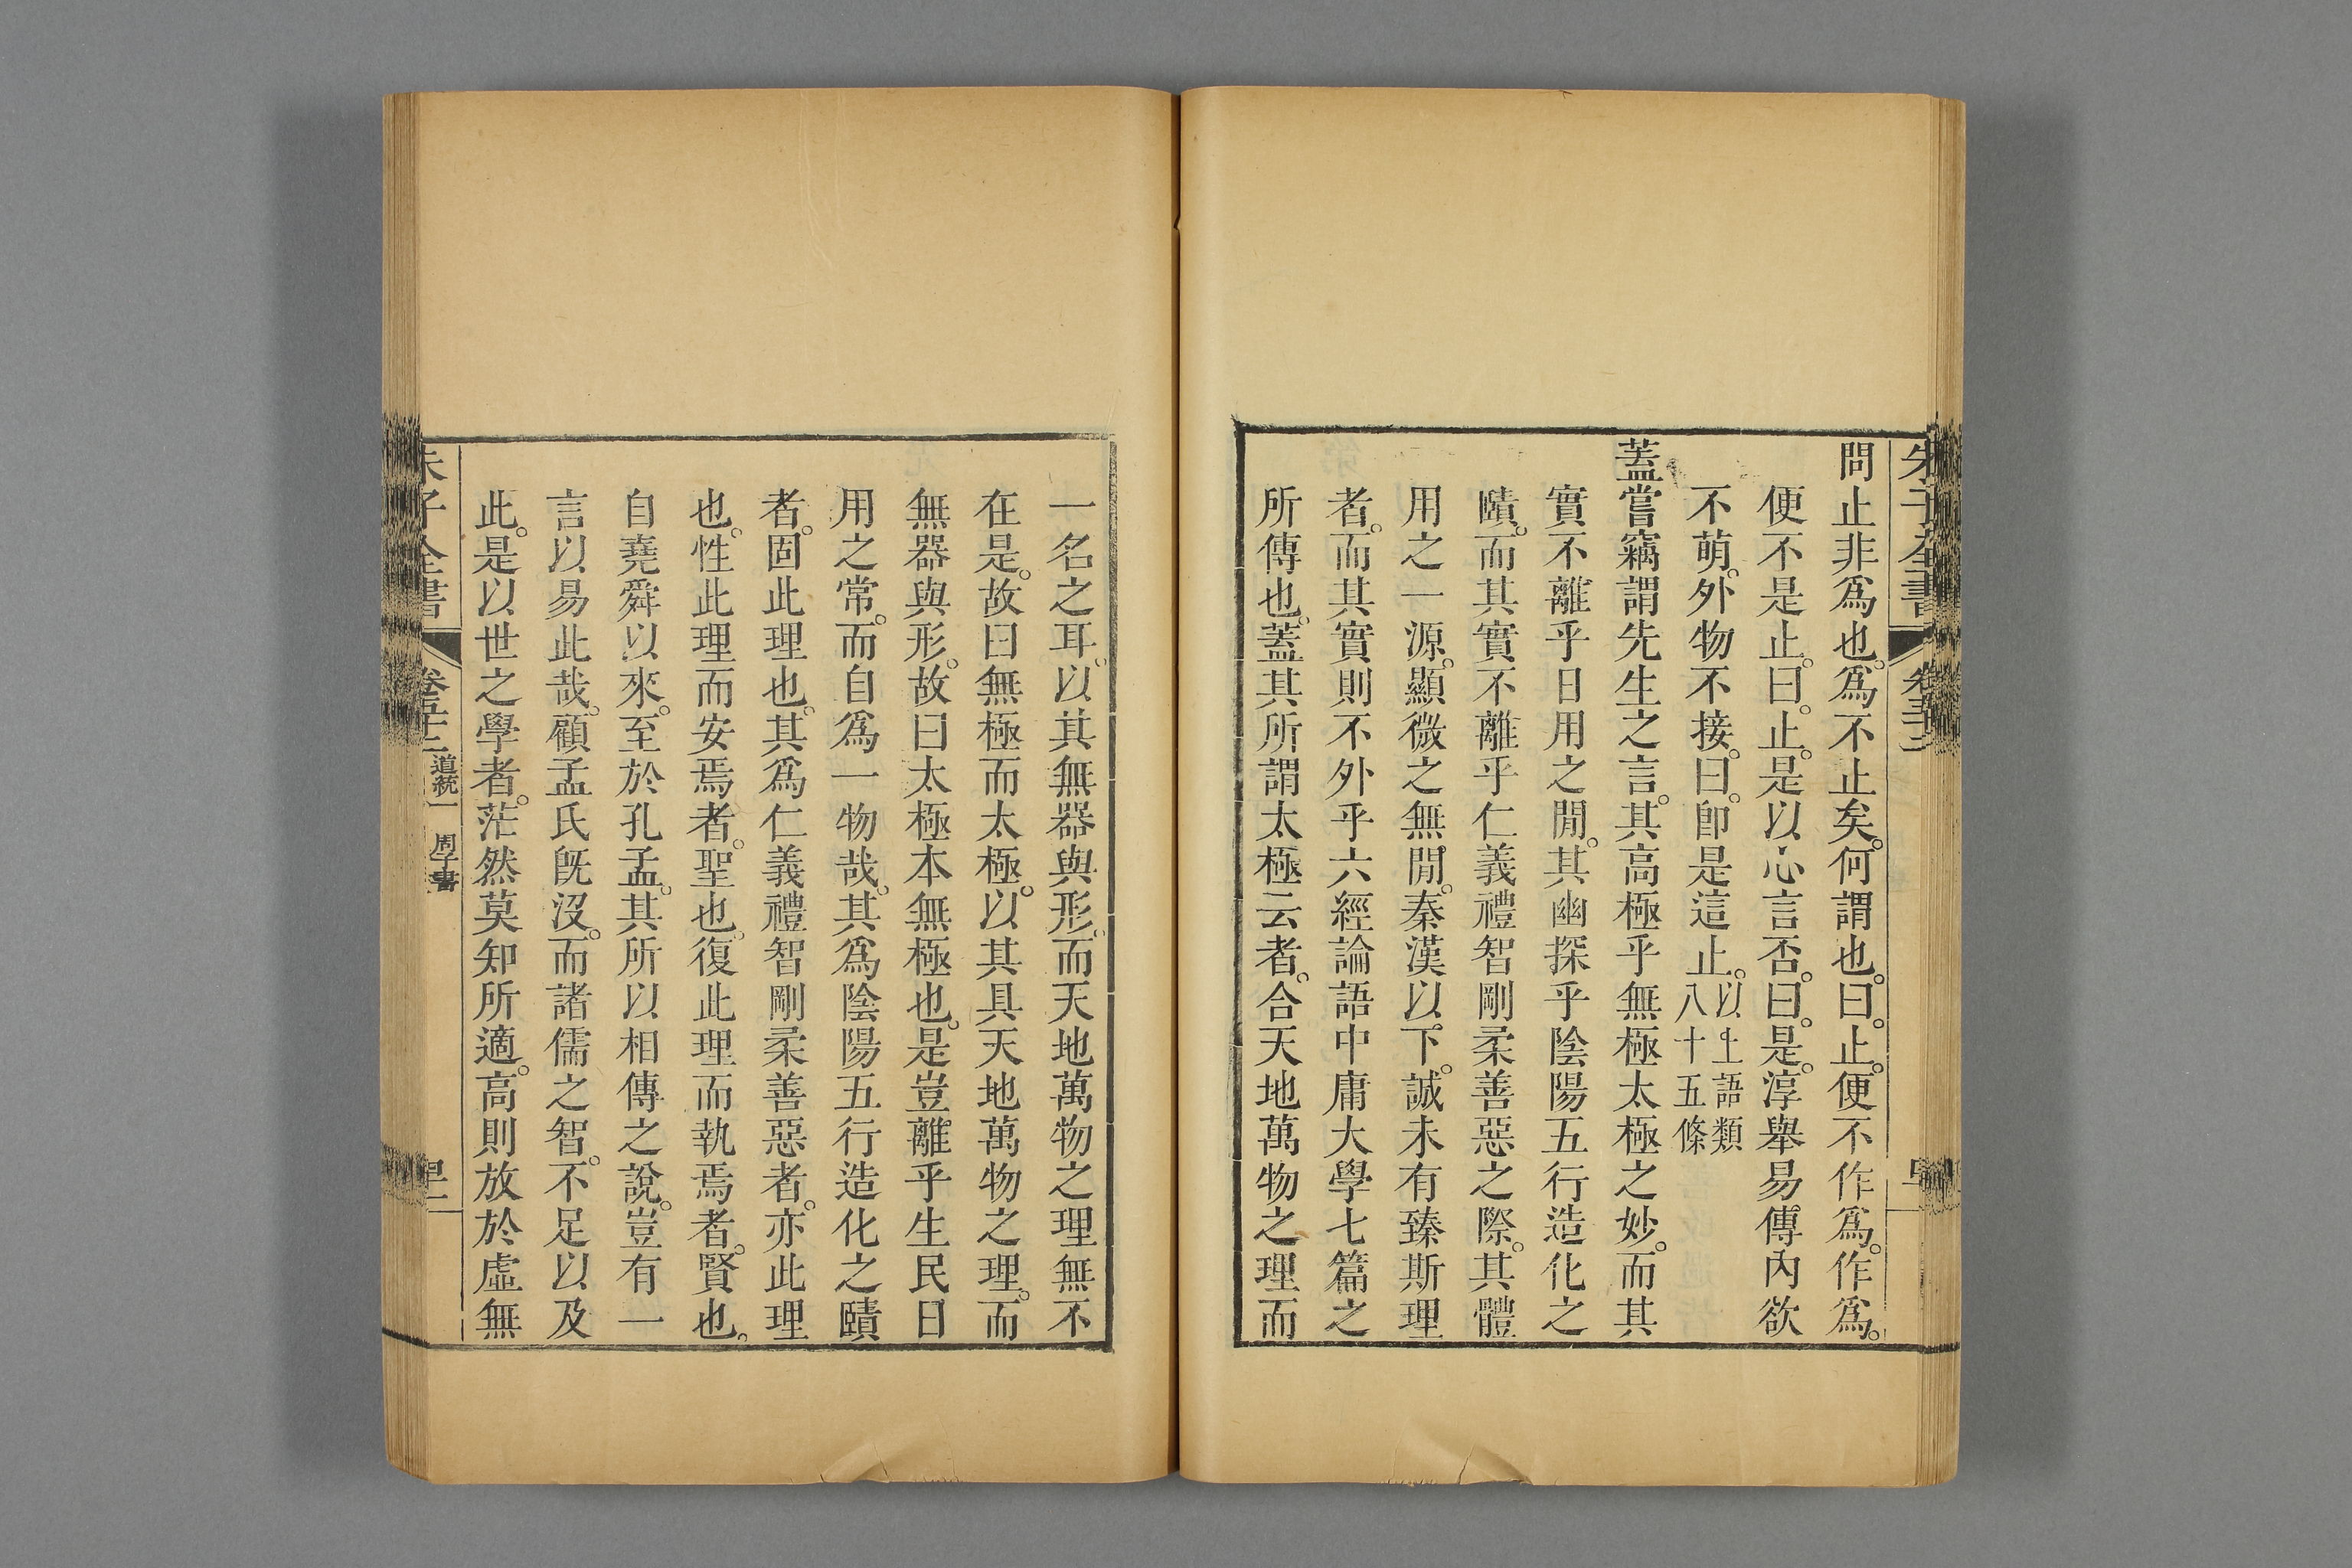 問止非爲也。爲不止矣。何謂也。曰。止。便不作爲。作爲。
便不是止。曰。止。是以心言否。曰。是。淳舉易傳內欲
不萌。外物不接。曰。卽是這止。以上語類八十五條
蓋嘗竊謂先生之言。其高極乎無極太極之妙。而其
實不離乎日用之閒。其幽探乎陰陽五行造化之
賾。而其實不離乎仁義禮智剛柔善惡之際。其體
用之一源。顯微之無閒。秦漢以下。誠未有臻斯理
者。而其實則不外乎六經論語中庸大學七篇之
所傳也。蓋其所謂太極云者。合天地萬物之理而
一名之耳。以其無器與形。而天地萬物之理無不
在是。故曰無極而太極。以其具天地萬物之理。而
無器與形。故曰太極本無極也。是豈離乎生民日
用之常。而自爲一物哉。其爲陰陽五行造化之賾
者。固此理也。其爲仁義禮智剛柔善惡者。亦此理
也。性此理而安焉者。聖也。復此理而執焉者。賢也。
自堯舜以來。至於孔孟。其所以相傳之說。豈有一
言以易此哉。顧孟氏旣沒。而諸儒之智。不足以及
此。是以世之學者。茫然莫知所適。高則放於虛無
朱子全書 道統一 周子書